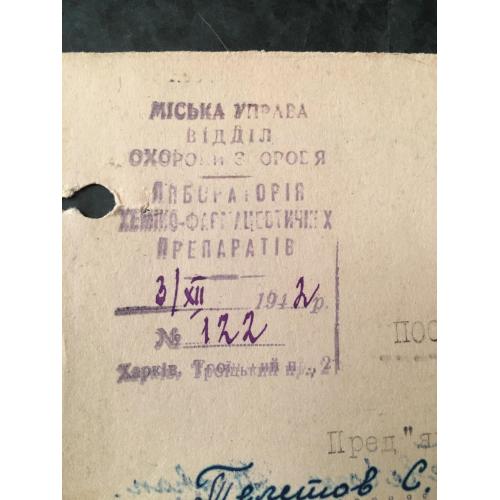 МІСЬКА УПРАВА
ВІДДІЛ
ОХОРОНИ ЗДОРОВЯ
ЛАБОРАТОРІЯ
ХЕМІКО-ФАРМАЦЕВТИЧНИХ
ПРЕПАРАТІВ
3/XII 1942 р.
№ 122
Харків, Троїцький п., 2
ПОС
Пред"я
Телетов С.